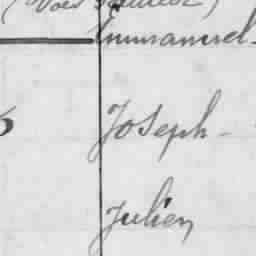 Emmanuel-
Joseph-
Julien